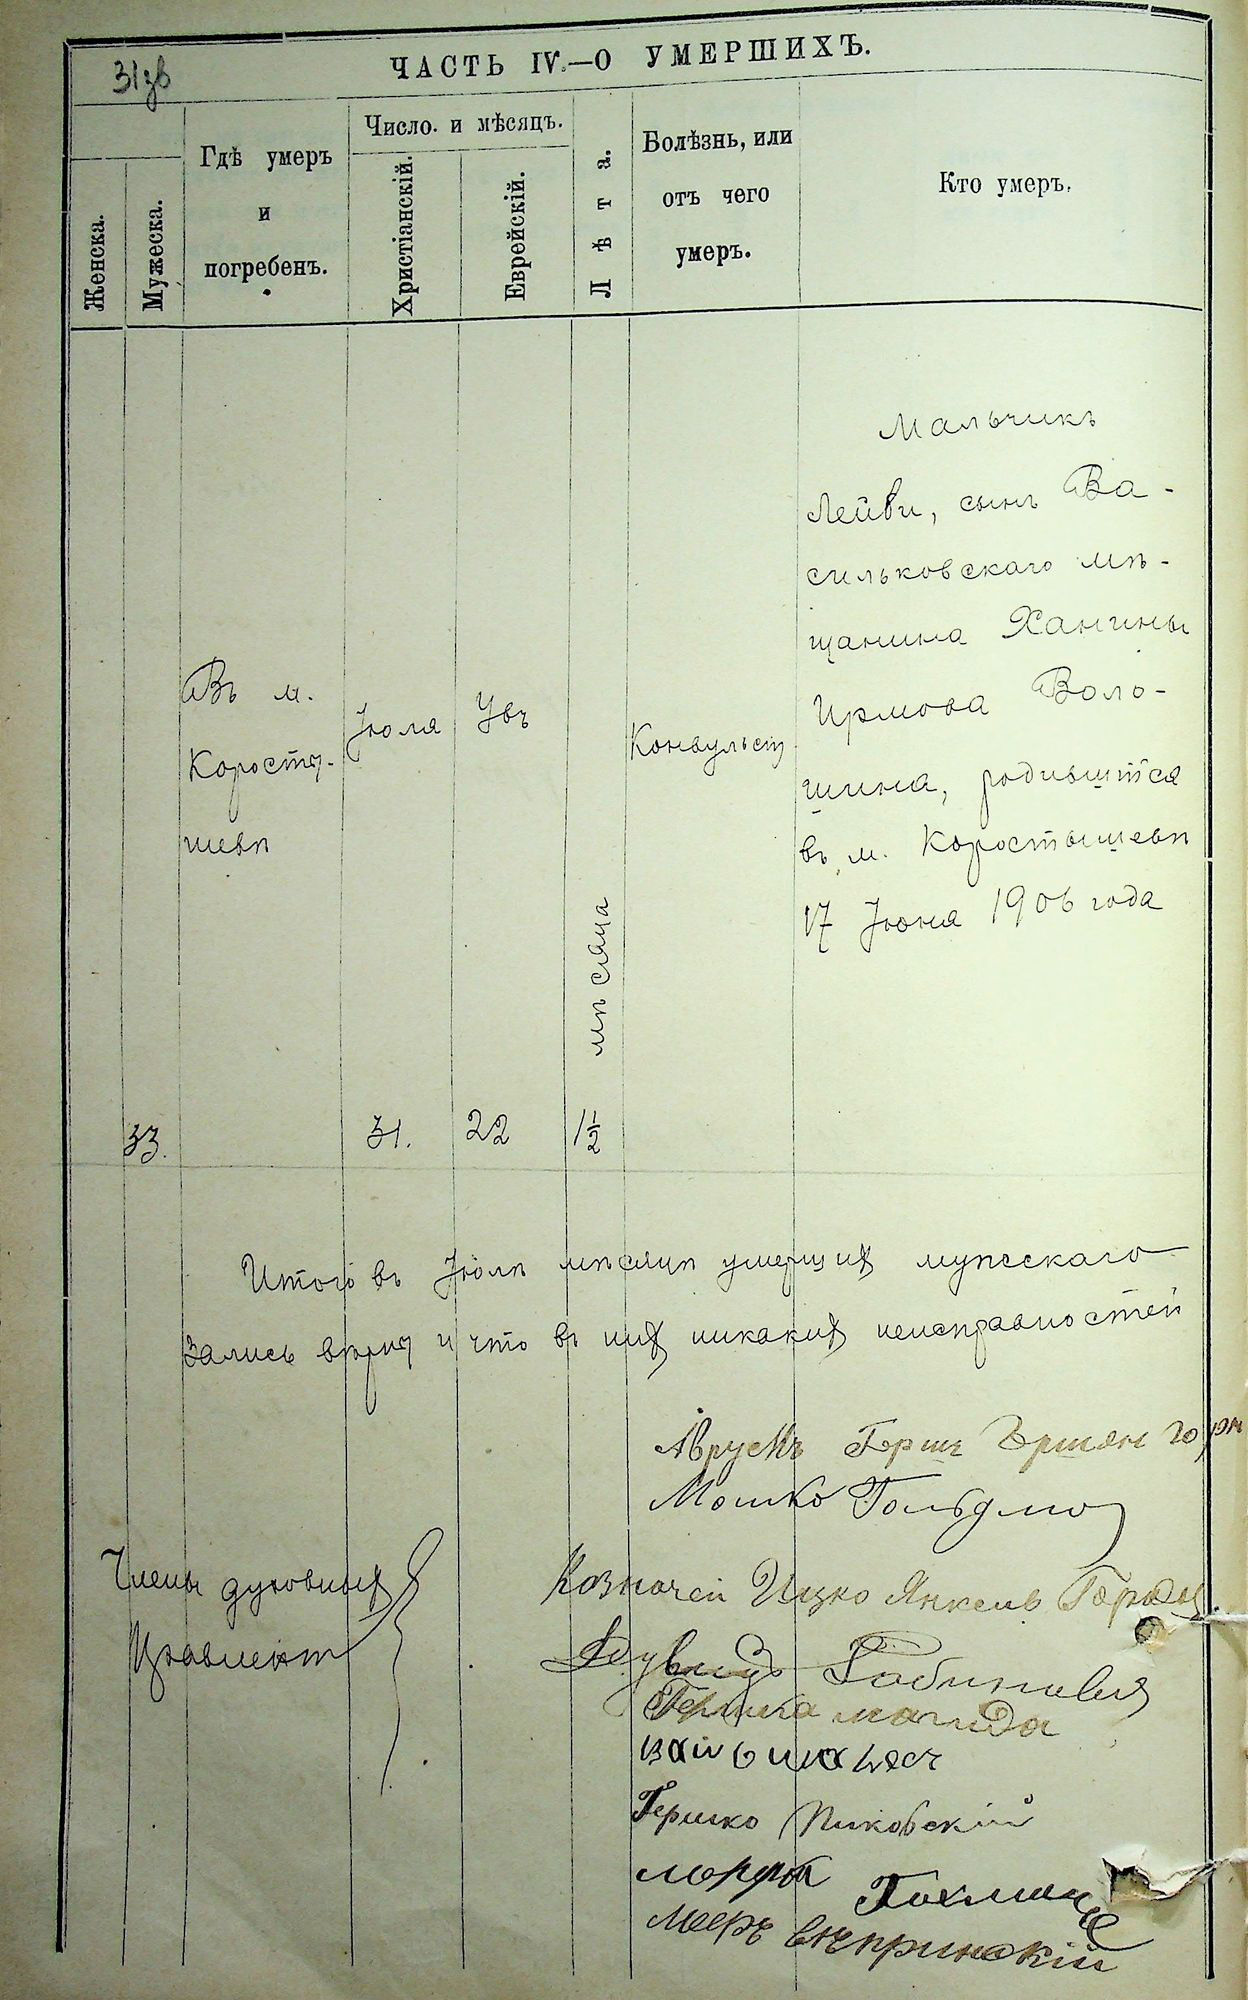 31зв
ЧАСТЬ IV.—О УМЕРШИХЪ.
Женска.
Мужеска.
Гдѣ умеръ
и
погребенъ.
Число. и мѣсяцъ.
Христіанскій.
Еврейскій.
Лѣта.
Болѣзнь, или
отъ чего
умеръ.
Кто умеръ.
33.
Въ м.
Коросты-
шевѣ
Іюля
31.
Увъ
22
1½
мѣсяца
Конвульсіи
Мальчикъ
Лейви, сынъ Ва-
сильковскаго мѣ-
щанина Ханины
Ирмова Воло-
шина, родившійся
въ м. Коростышевѣ
17 Іюня 1906 года
Итого въ Іюлѣ мѣсяцѣ умершихъ мужескаго
Запись вѣрна и что въ нихъ никакихъ неисправностей
Аврумъ Герш
Мошко
Члены духовныхъ
Казначей Ицко Янкель
Рабиновичъ
Гершко
Гершко Пиковскій
Мееръ